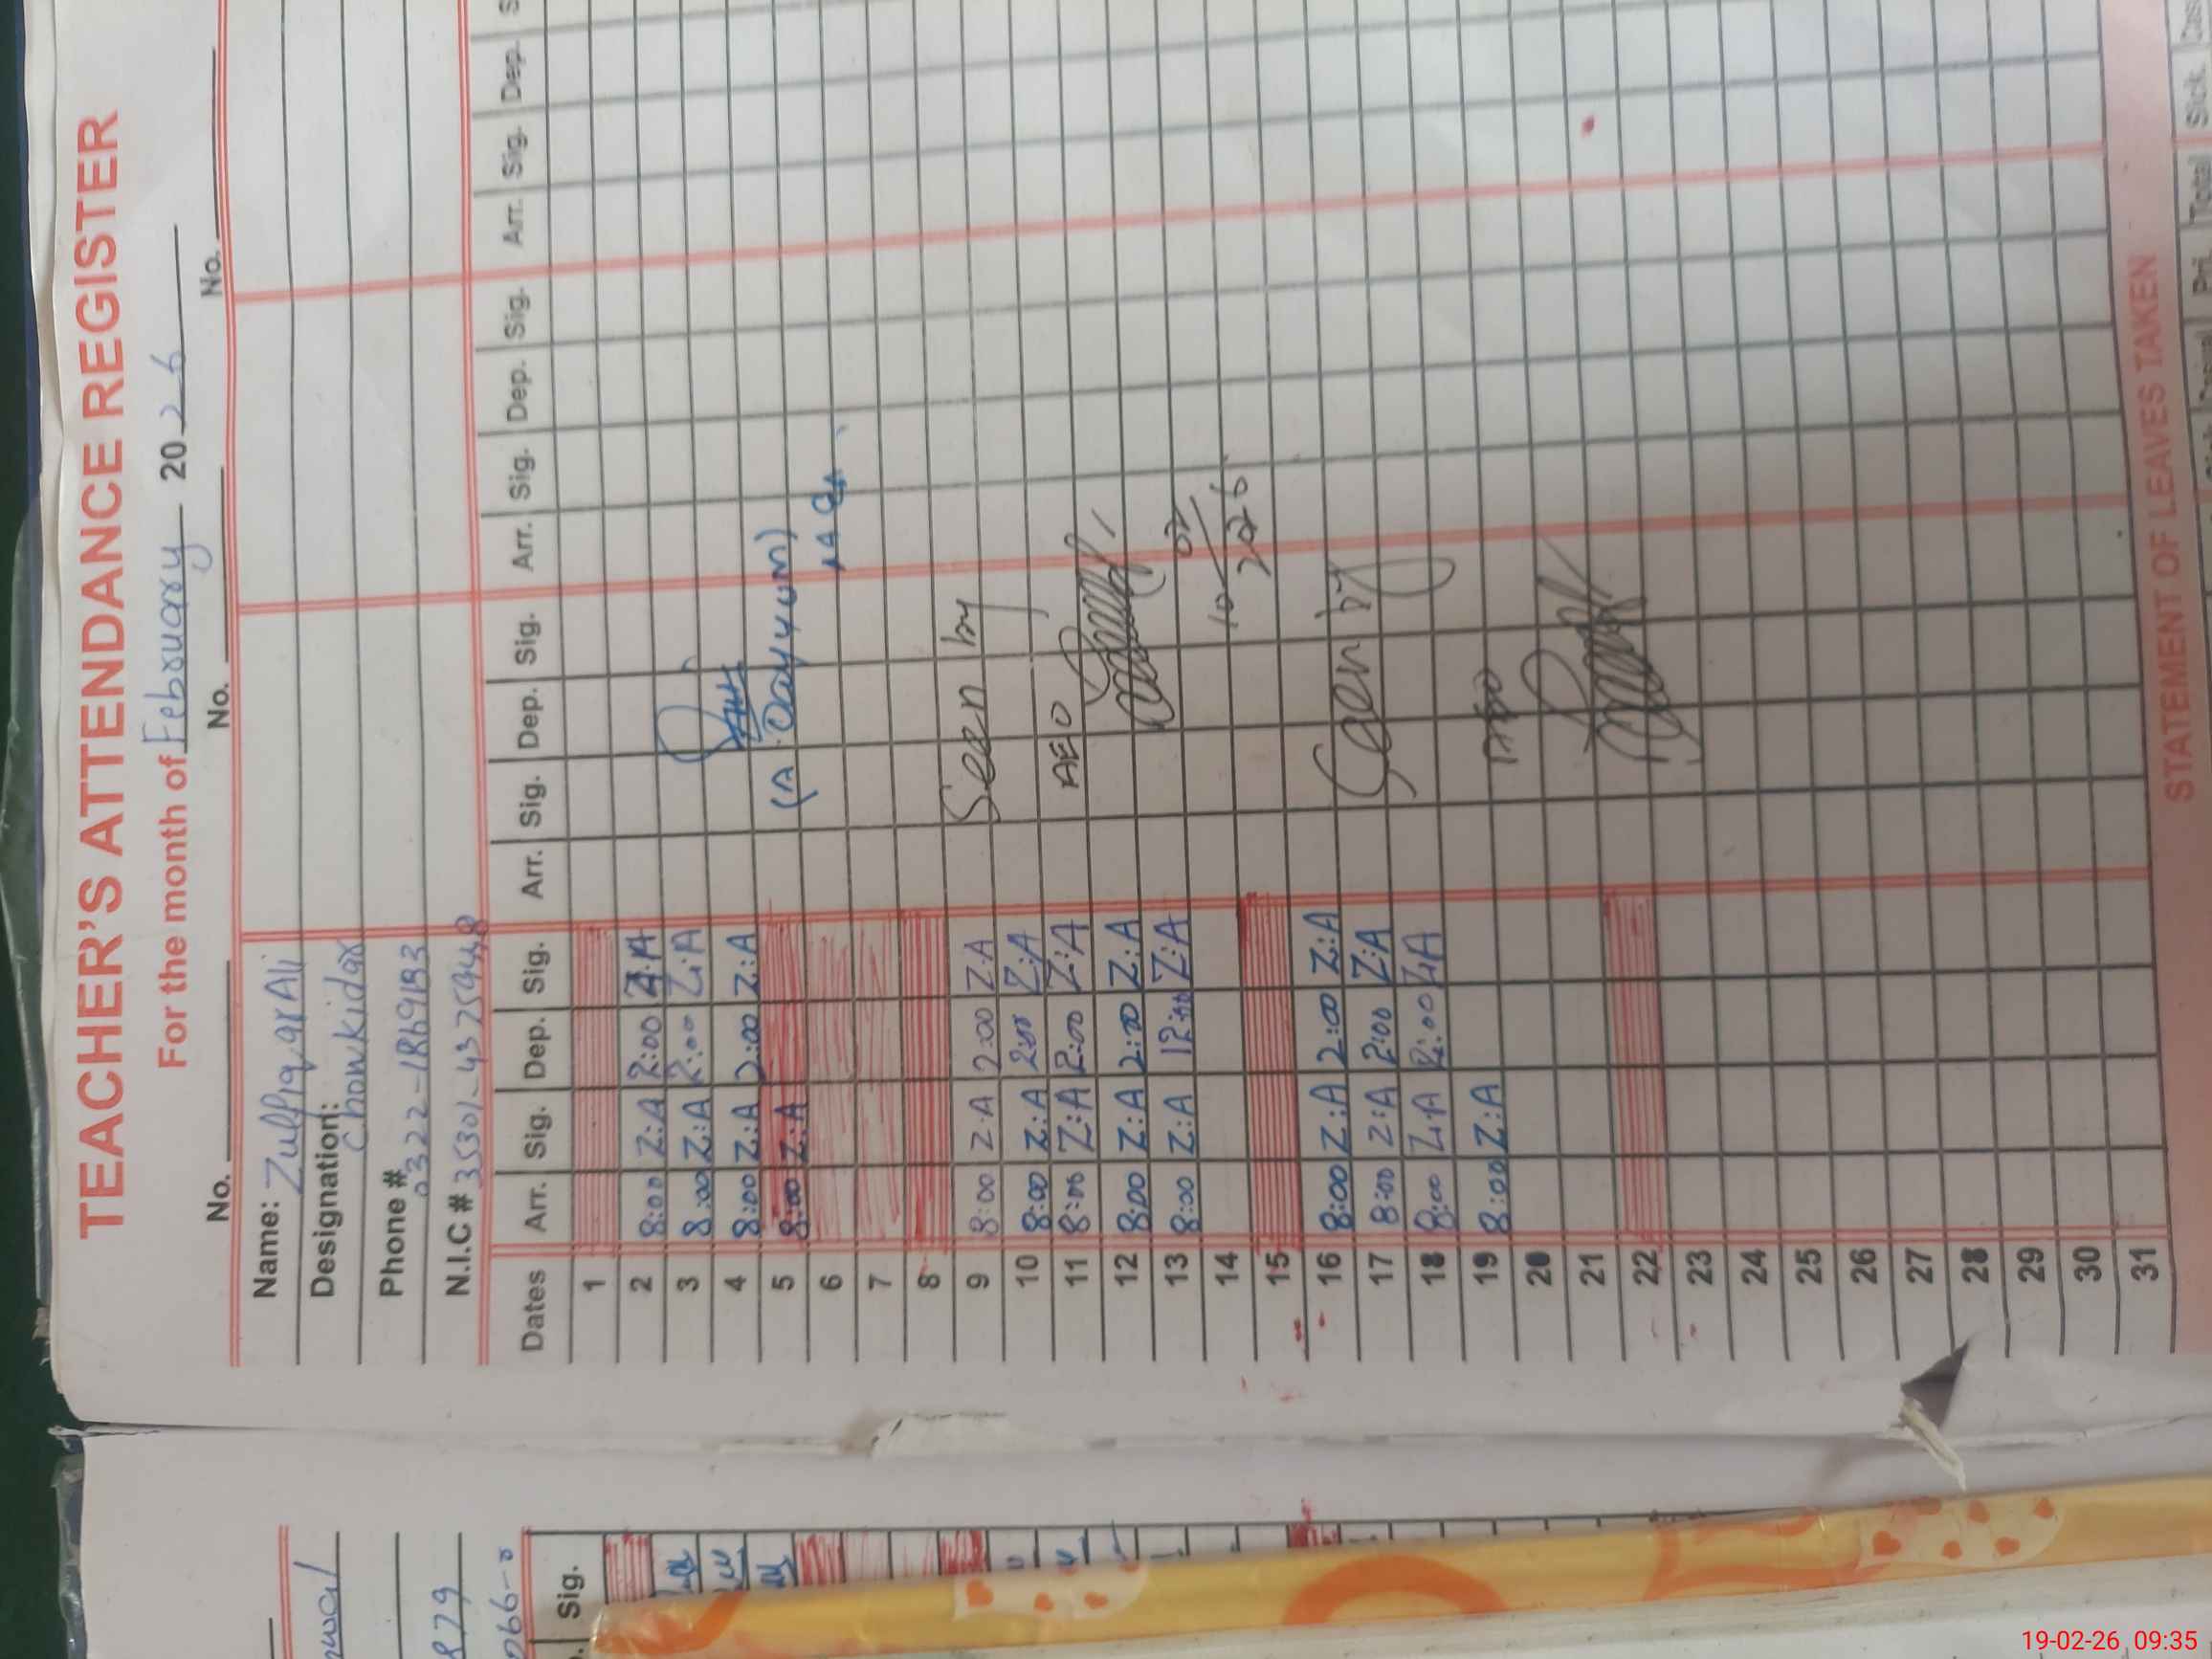 TEACHER'S ATTENDANCE REGISTER
For the month of February 2026
No. No. No. No.
Name: Zulfiqar Ali
Designation: Chowkidar
Phone # 0322-1869193
N.I.C # 35301-4375
Dates Arr. Sig. Dep. Sig. Arr. Sig. Dep. Sig. Arr. Sig. Dep. Sig. Arr. Sig. Dep. S
1
2 8:00 Z:A 2:00 Z.A
3 8:00 Z:A 2:00 Z.A
4 8:00 Z:A 2:00 Z:A
5 8:00 Z:A (A. Qayyum)
6
7
8
9 8:00 Z.A 2:00 Z.A Seen by
10 8:00 Z:A 2:00 Z:A
11 8:00 Z:A 2:00 Z:A AEO
12 8:00 Z:A 2:00 Z:A
13 8:00 Z:A 12:00 Z:A
14 10/02/2026
15
16 8:00 Z:A 2:00 Z:A Seen by
17 8:00 Z:A 2:00 Z:A
18 8:00 Z.A 2:00 Z.A
19 8:00 Z:A AEO
20
21
22
23
24
25
26
27
28
29
30
31
STATEMENT OF LEAVES TAKEN
Pri. Total Sick.
879
Sig.
19-02-26 09:35